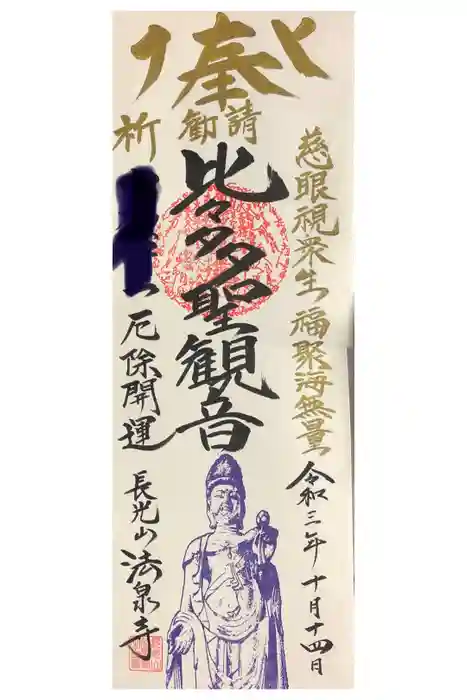 奉
勧請
慈眼視衆生 福聚海無量
令和三年十月十四日
比々多聖観音
祈
厄除開運
長光山法泉寺